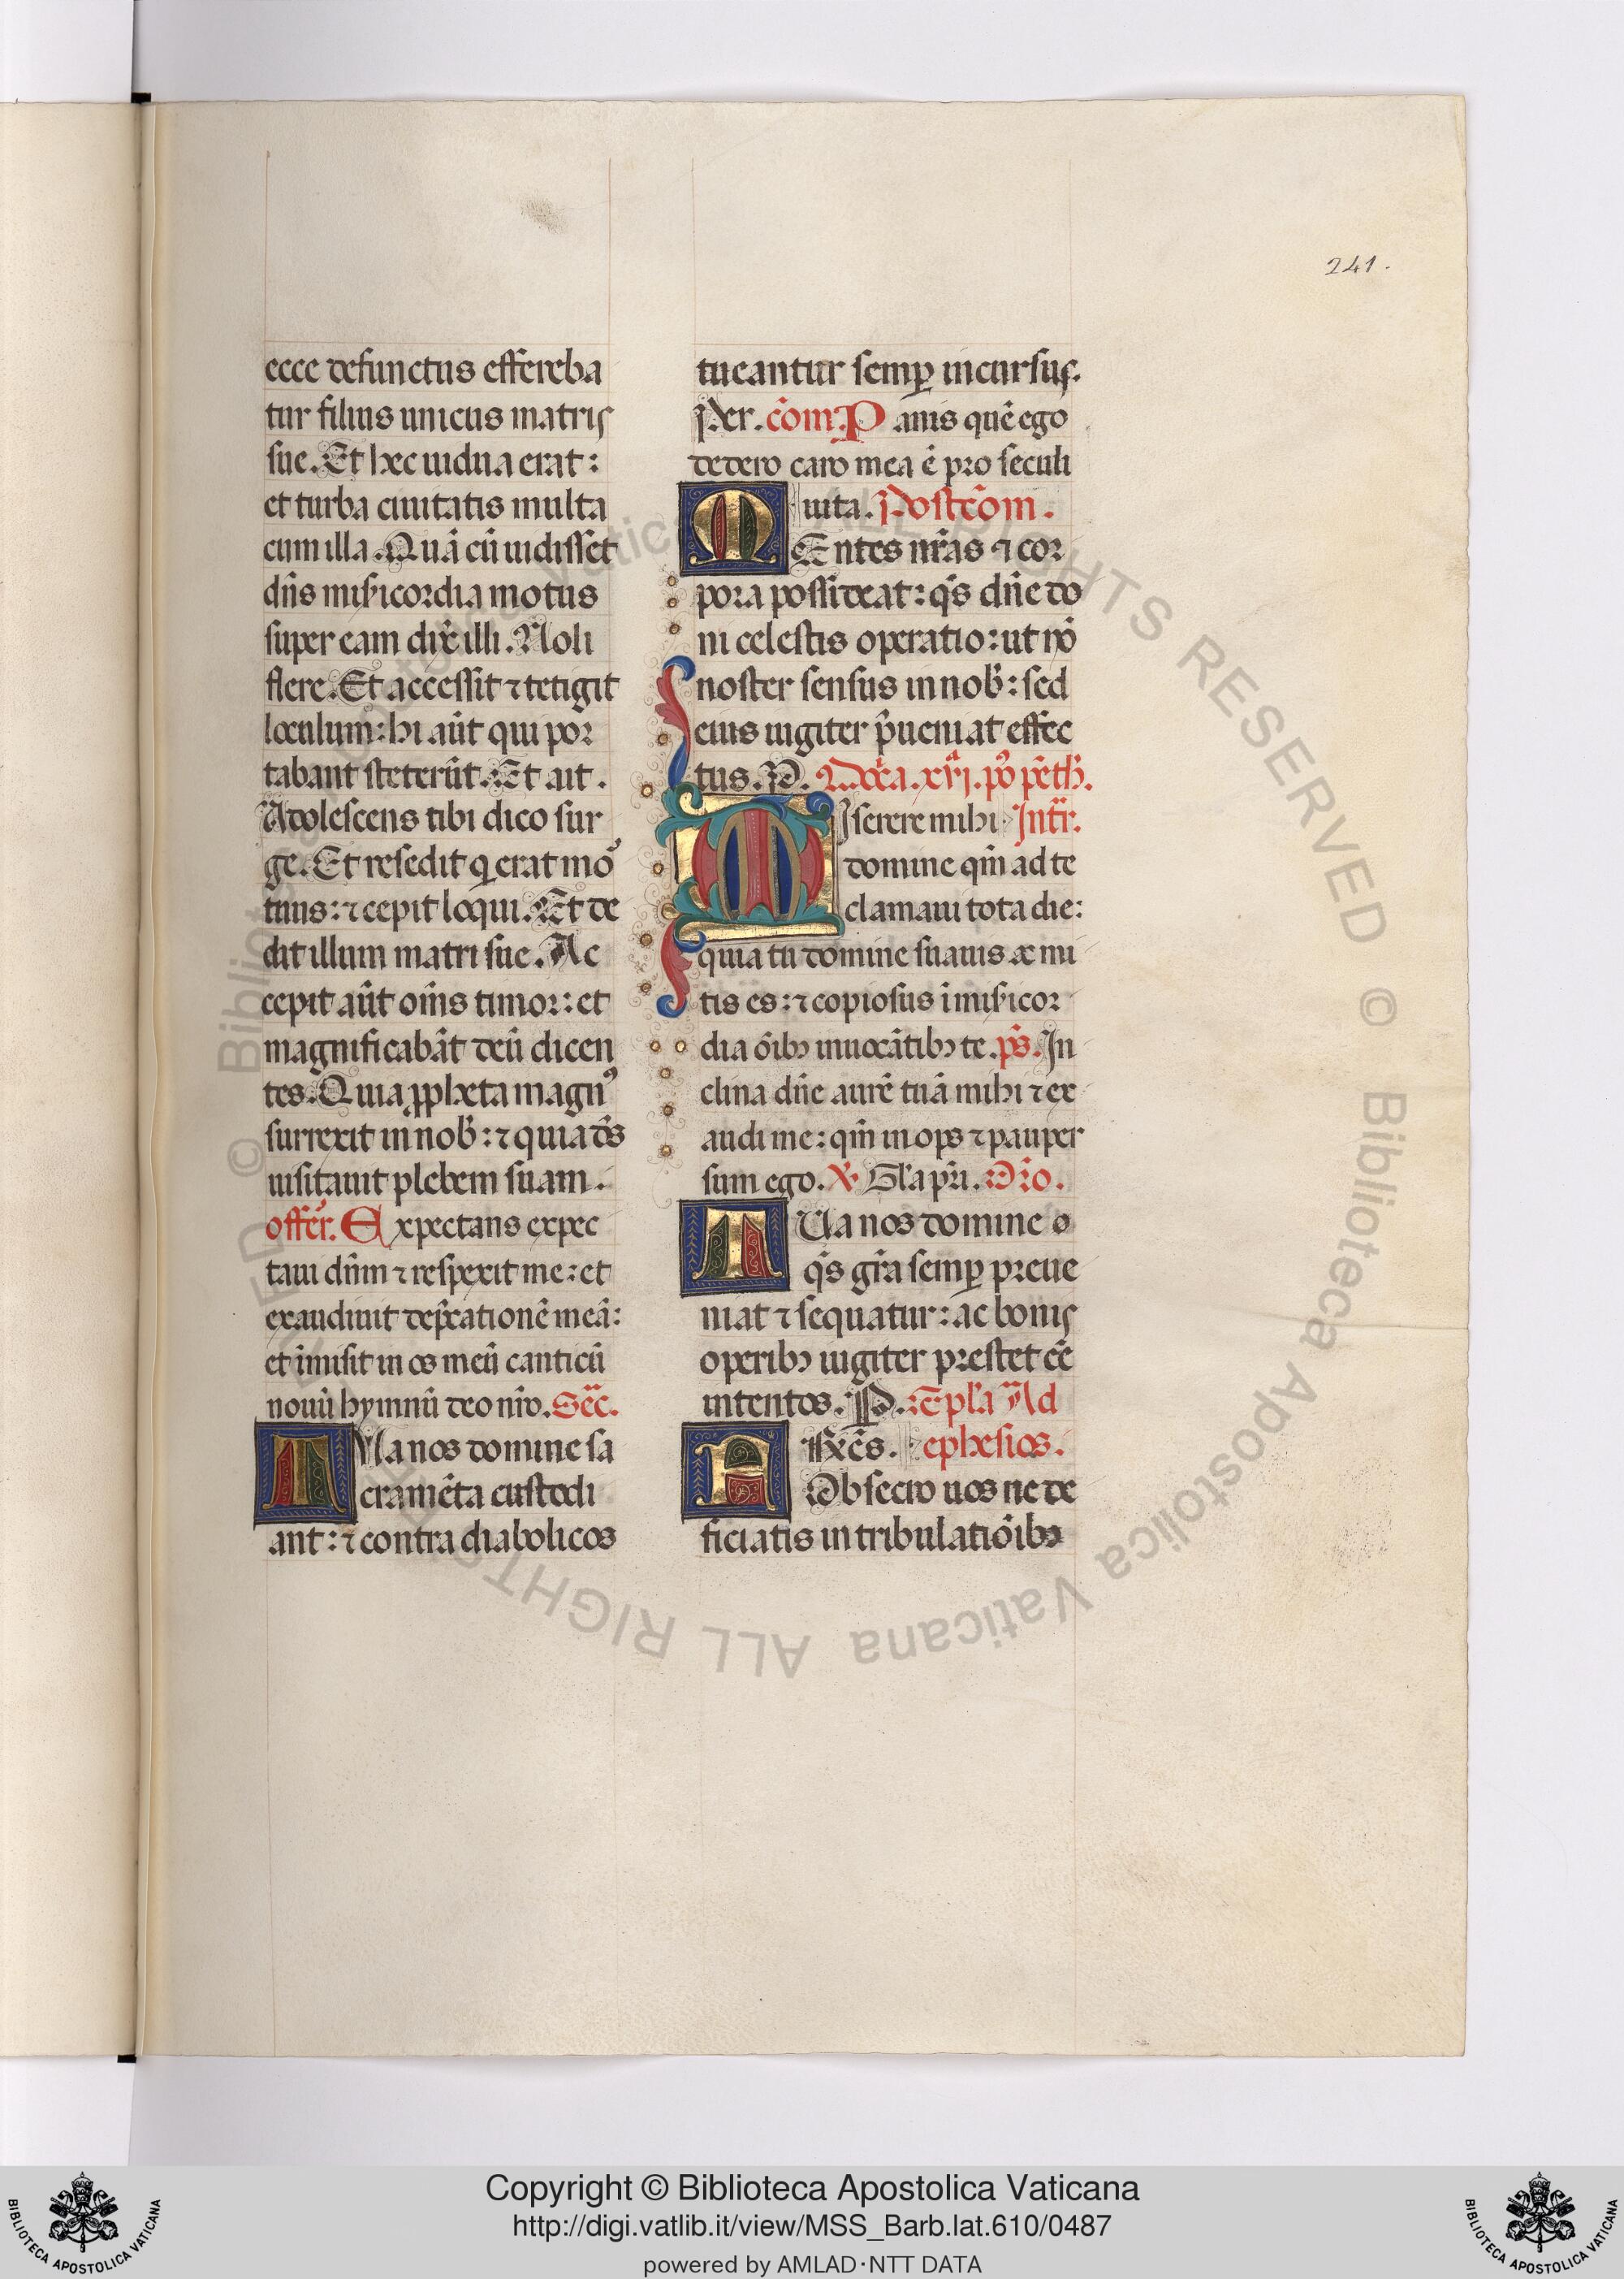 241.
ecce defunctus effereba
tur filius unicus matris
sue. Et hec uidua erat:
et turba ciuitatis multa
cum illa. Quā cū uidisset
dn̄s misicordia motus
super eam dix̄ illi. Noli
flere. Et accessit ⁊ tetigit
loculum: hi aūt qui por
tabant steterūt. Et ait.
Adolescens tibi dico sur
ge. Et resedit q̇ erat mor
tuus: ⁊ cepit loqui. Et de
dit illum matri sue. Ac
cepit aūt om̄s timor: et
magnificabāt deū dicen
tes. Quia ꝓpheta magnꝰ
surrexit in nob̄: ⁊ quia ds̄
uisitauit plebem suam.
offer̄. Expectans expec
taui dn̄m ⁊ respexit me: et
exaudiuit dep̄cationē meā:
et īmisit in os meū canticū
nouū hymnū deo nr̄o. Sec̄.
Uanos domine sa
cramēta custodi
ant: ⁊ contra diabolicos
tueantur semꝑ incursus.
Per. cōm. Panis quē ego
dedero caro mea ē pro seculi
uita. Postcōm.
MEntes nr̄as ⁊ cor
pora possideat: qs̄ dn̄e do
ni celestis operatio: ut nō
noster sensus in nob̄: sed
eius iugiter p̄ueniat effec
tus. P. Dn̄ica. xvj. pꝰ pēth̄.
MIserere mihi Intr̄.
domine qm̄ ad te
clamaui tota die:
quia tu domine suauis ac mi
tis es: ⁊ copiosus ī misicor
dia ōibꝫ inuocātibꝫ te. ps̄. In
clina dn̄e aurē tuā mihi ⁊ ex
audi me: qm̄ inops ⁊ pauper
sum ego. ℣. Gl̄a pr̄i. Or̄o.
TUa nos domine
qs̄ gr̄a semꝑ preue
niat ⁊ sequatur: ac bonis
operibꝫ iugiter prestet eē
intentos. P. Ep̄la Ad
FRēs. ephesios.
Obsecro uos ne de
ficiatis in tribulatiōibꝫ
Copyright © Biblioteca Apostolica Vaticana
http://digi.vatlib.it/view/MSS_Barb.lat.610/0487
powered by AMLAD·NTT DATA
BIBLIOTECA APOSTOLICA VATICANA
BIBLIOTECA APOSTOLICA VATICANA
© Biblioteca Apostolica Vaticana ALL RIGHTS RESERVED